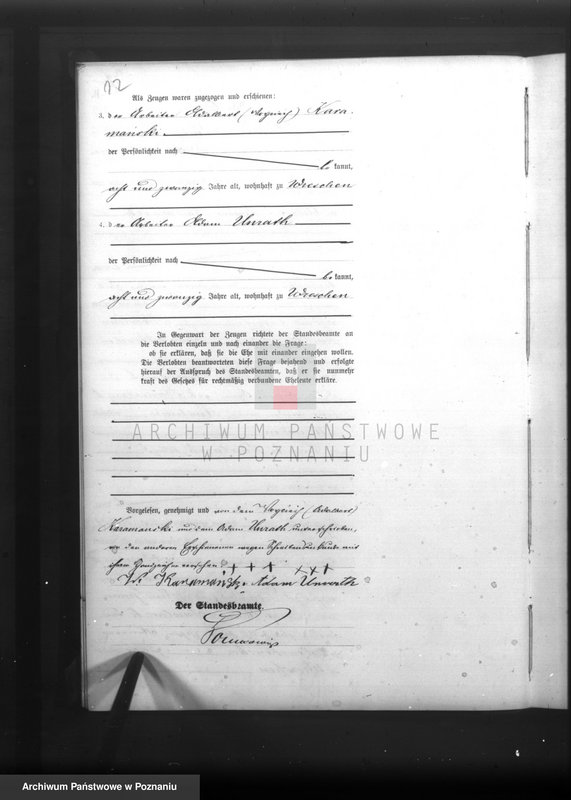 12
Als Zeugen waren zugezogen und erschienen:
3. der Arbeiter Adalbert (Wojciech) Kara-
mański
der Persönlichkeit nach
bekannt,
acht und zwanzig Jahre alt, wohnhaft zu Wreschen
4. der Arbeiter Adam Unrath
der Persönlichkeit nach
bekannt,
acht und zwanzig Jahre alt, wohnhaft zu Wreschen
In Gegenwart der Zeugen richtete der Standesbeamte an
die Verlobten einzeln und nach einander die Frage:
ob sie erklären, daß sie die Ehe mit einander eingehen wollen.
Die Verlobten beantworteten diese Frage bejahend und erfolgte
hierauf der Ausspruch des Standesbeamten, daß er sie nunmehr
kraft des Gesetzes für rechtmäßig verbundene Eheleute erkläre.
ARCHIWUM PAŃSTWOWE
W POZNANIU
Vorgelesen, genehmigt und von dem Wojciech (Adalbert)
Karamanski und dem Adam Unrath unterschrieben,
von den anderen Erschienenen wegen Schreibensunkunde mit
ihren Handzeichen versehen + + + + + +
W. Karamański Adam Unrath
Der Standesbeamte.
Archiwum Państwowe w Poznaniu